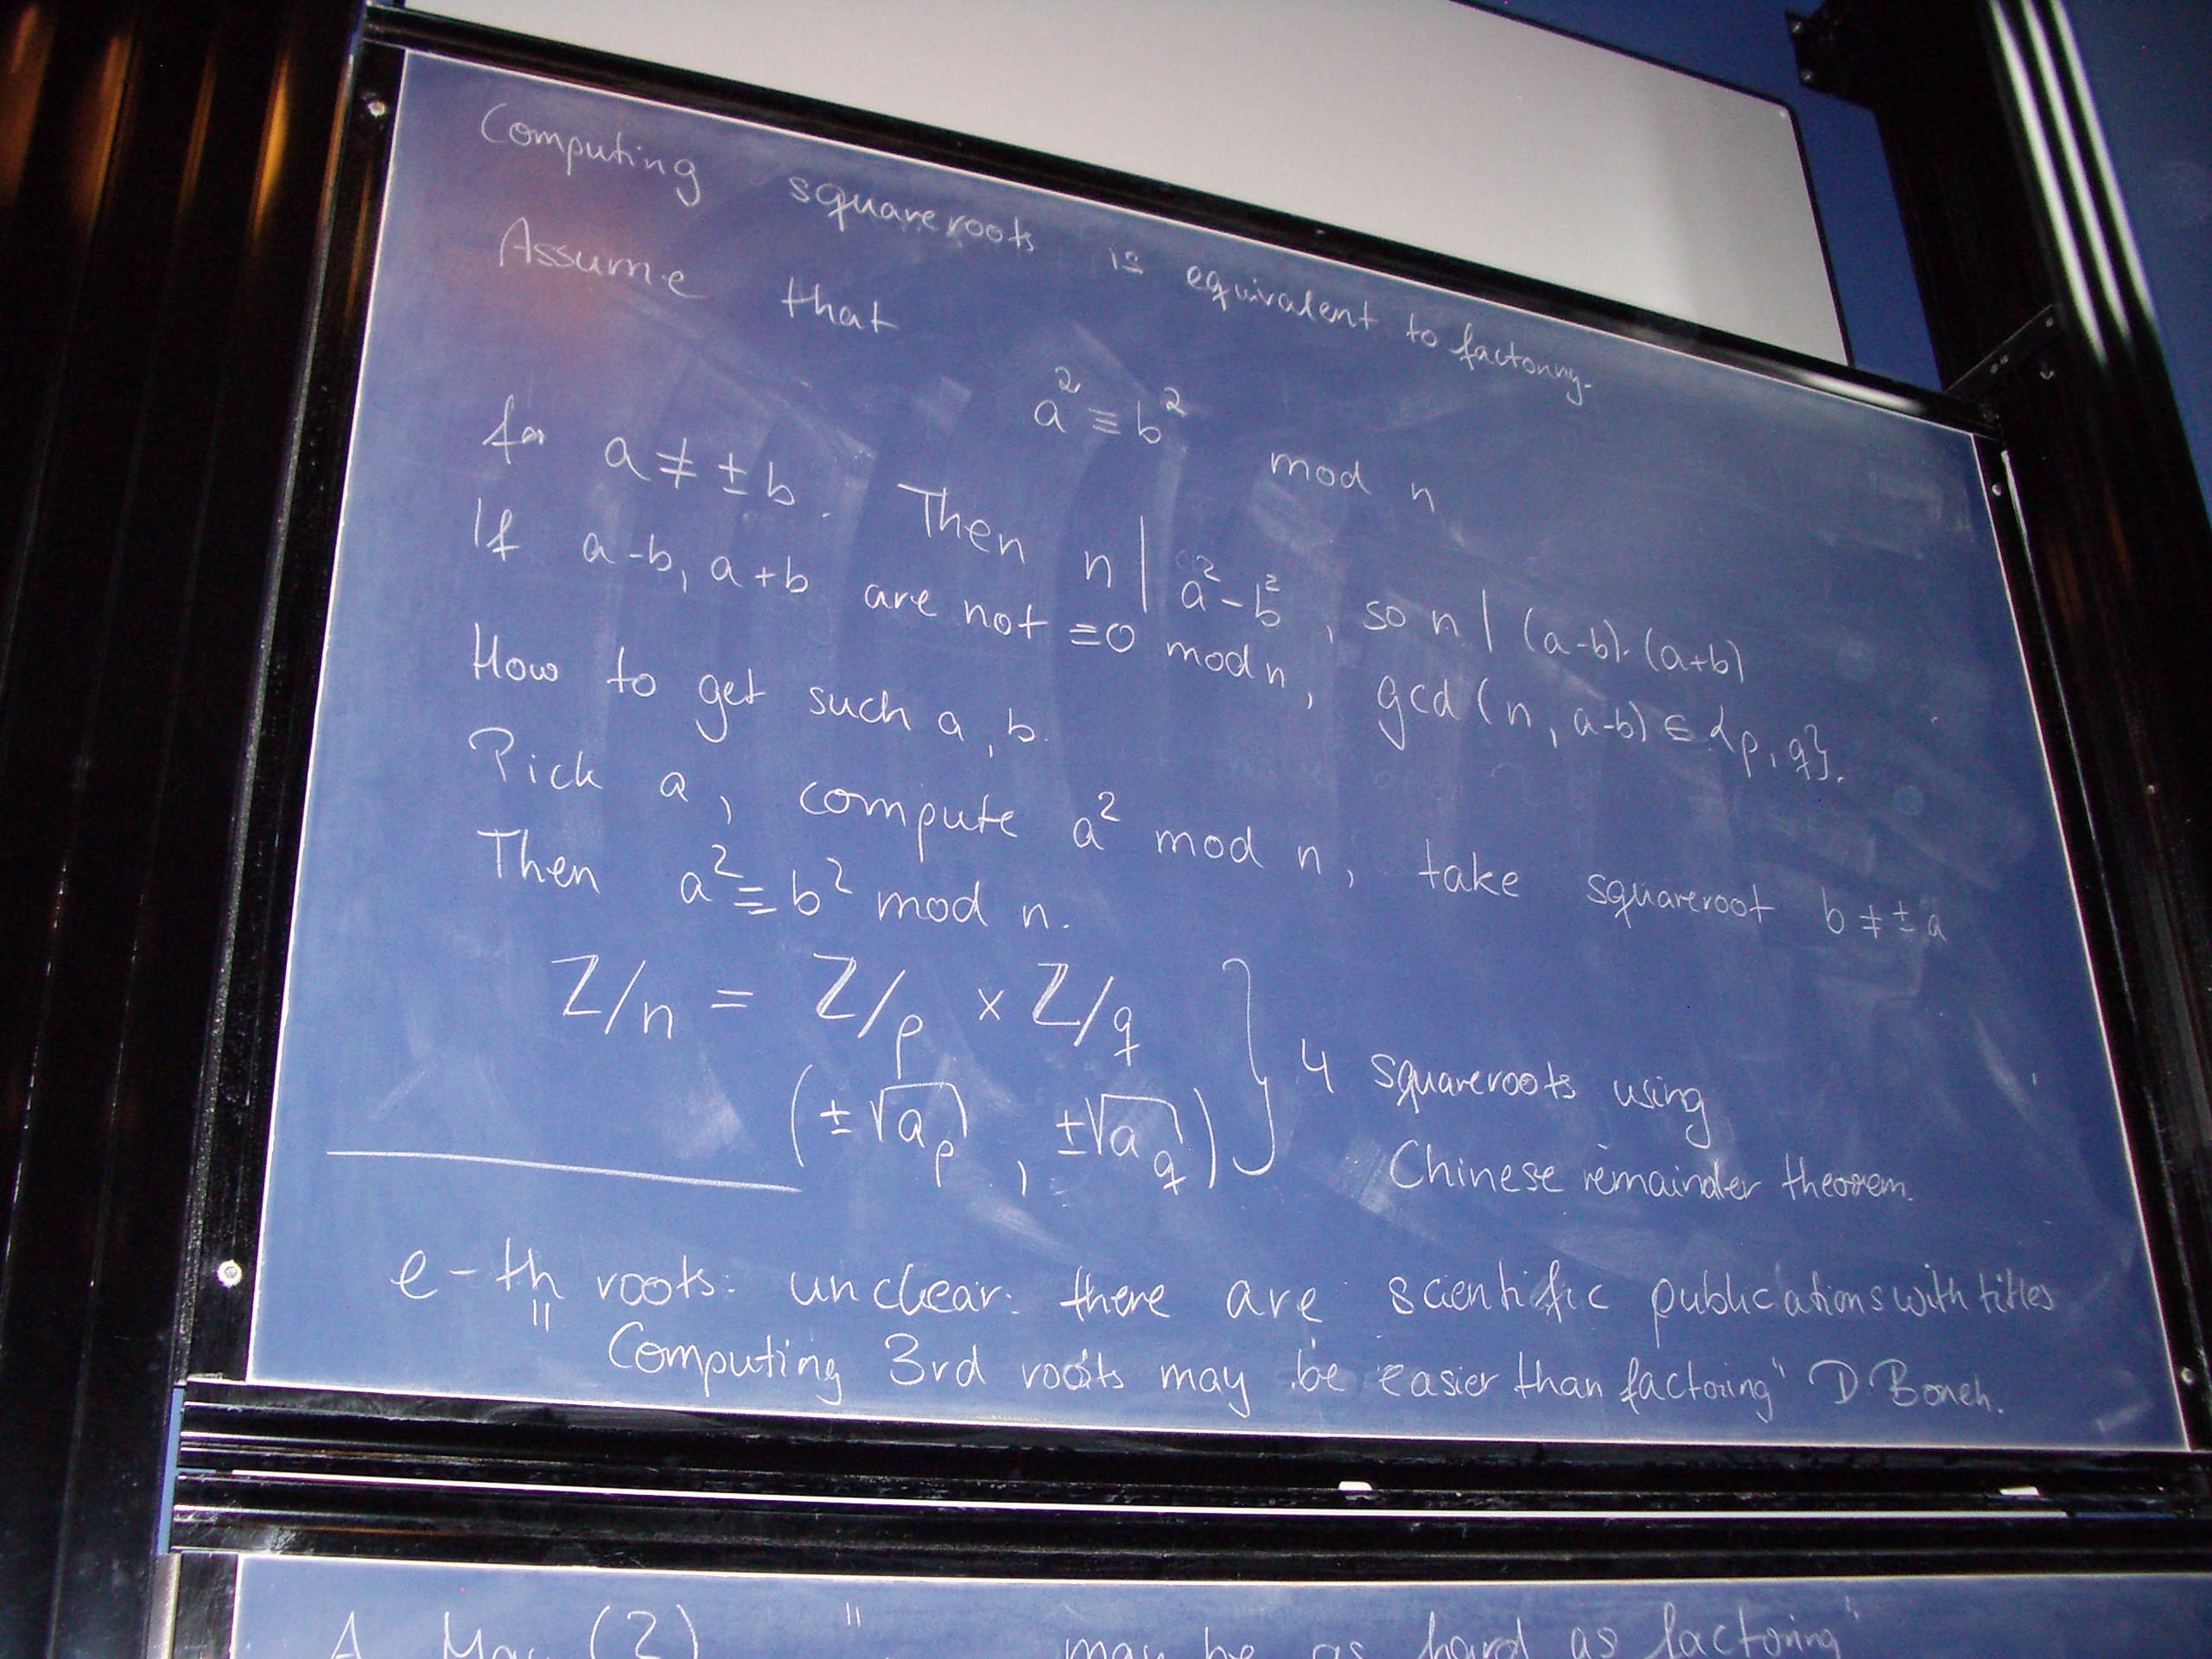 Computing squareroots is equivalent to factoring.
Assume that
a² ≡ b² mod n
for a ≠ ±b. Then n | a²-b², so n | (a-b)·(a+b)
If a-b, a+b are not ≡0 mod n, gcd(n, a-b) ∈ {p, q}.
How to get such a, b.
Pick a, compute a² mod n, take squareroot b ≠ ±a
Then a² ≡ b² mod n.
Z/n = Z/p × Z/q
(±√a_p, ±√a_q) } 4 squareroots using
Chinese remainder theorem.
e-th roots: unclear: there are scientific publications with titles
"Computing 3rd roots may be easier than factoring" D. Boneh.
A. May (?) " may be as hard as factoring"